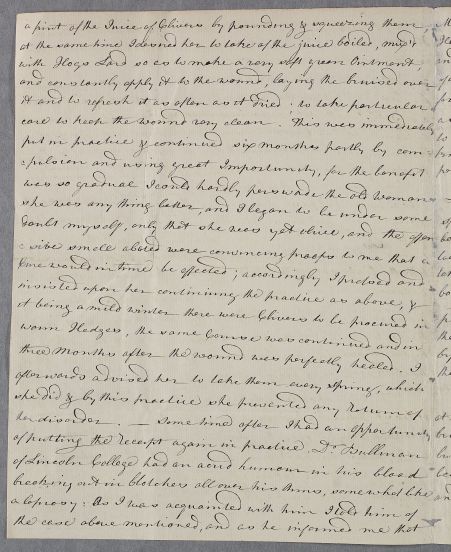 a pint of the Juice of Clivers by pounding & squeezing them
at the same time I desired her to take of the juice boiled, mix'd
with Hogs Lard so as to make a very soft green Ointment
and constantly apply it to the wound, laying the bruised over
it and to refresh it as often as it dried : to take particular
care to keep the wound very clean. This was immediately
put in practice & continued six months partly by com
:pulsion and using great Importunity, for the benefit
was so gradual I could hardly perswade the old Woman
she was any thing better, and I began to be under some
doubt myself, only that she was yet alive, and the offen
:sive smell abated were convincing proofs to me that a
Cure would in time be effected; accordingly I pressed and
insisted upon her continuing the practice as above, &
it being a mild winter there were Clivers to be procured in
warm Hedges, the same Course was continued and in
three Months after the wound was perfectly healed. I
afterwards advised her to take them every Spring, which
she did & by this practice she prevented any return of
her disorder. — some time after I had an opportunity
of putting the receipt again in practice Dr.
of Lincoln College had an acrid humour in his blood
breaking out in blotches all over his Arms, somewhat like
a leprosy: As I was acquainted with him I told him of
the case above mentioned, and as he informed me that